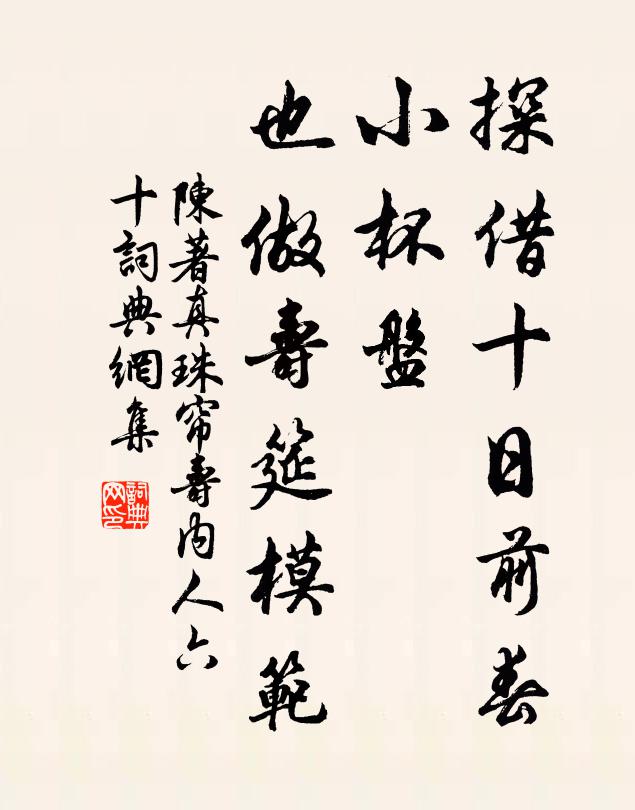 探借十日前春
小杯盤
也做壽筵模範
陳著真珠帘壽内人六
十詞典網集
詞典網印